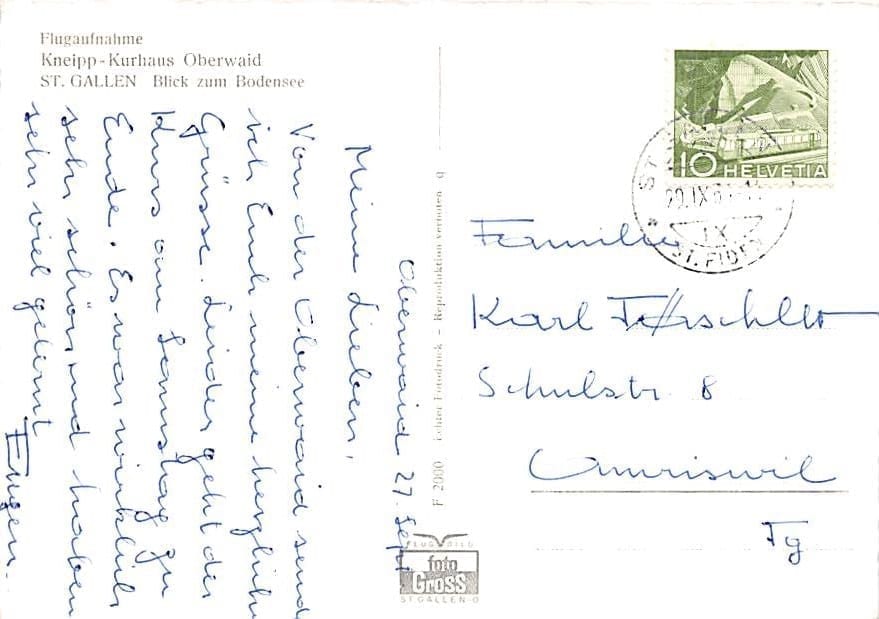 Flugaufnahme
Kneipp-Kurhaus Oberwaid
ST. GALLEN Blick zum Bodensee
Oberwaid 27. Sept
Meine Lieben,
Von der Oberwaid sende
ich Euch meine herzlichen
Grüsse. Leider geht der
Kurs am Samstag zu
Ende. Es war wirklich
sehr schön und haben
sehr viel gelernt
Eugen.
F 2000 Echter Fotodruck - Reproduktion verboten q
FLUGBILD
foto
Gross
ST. GALLEN-O
10 HELVETIA
29.IX
IX
ST. FIDEN
Familie
Karl
Schulstr. 8
Amriswil
Tg